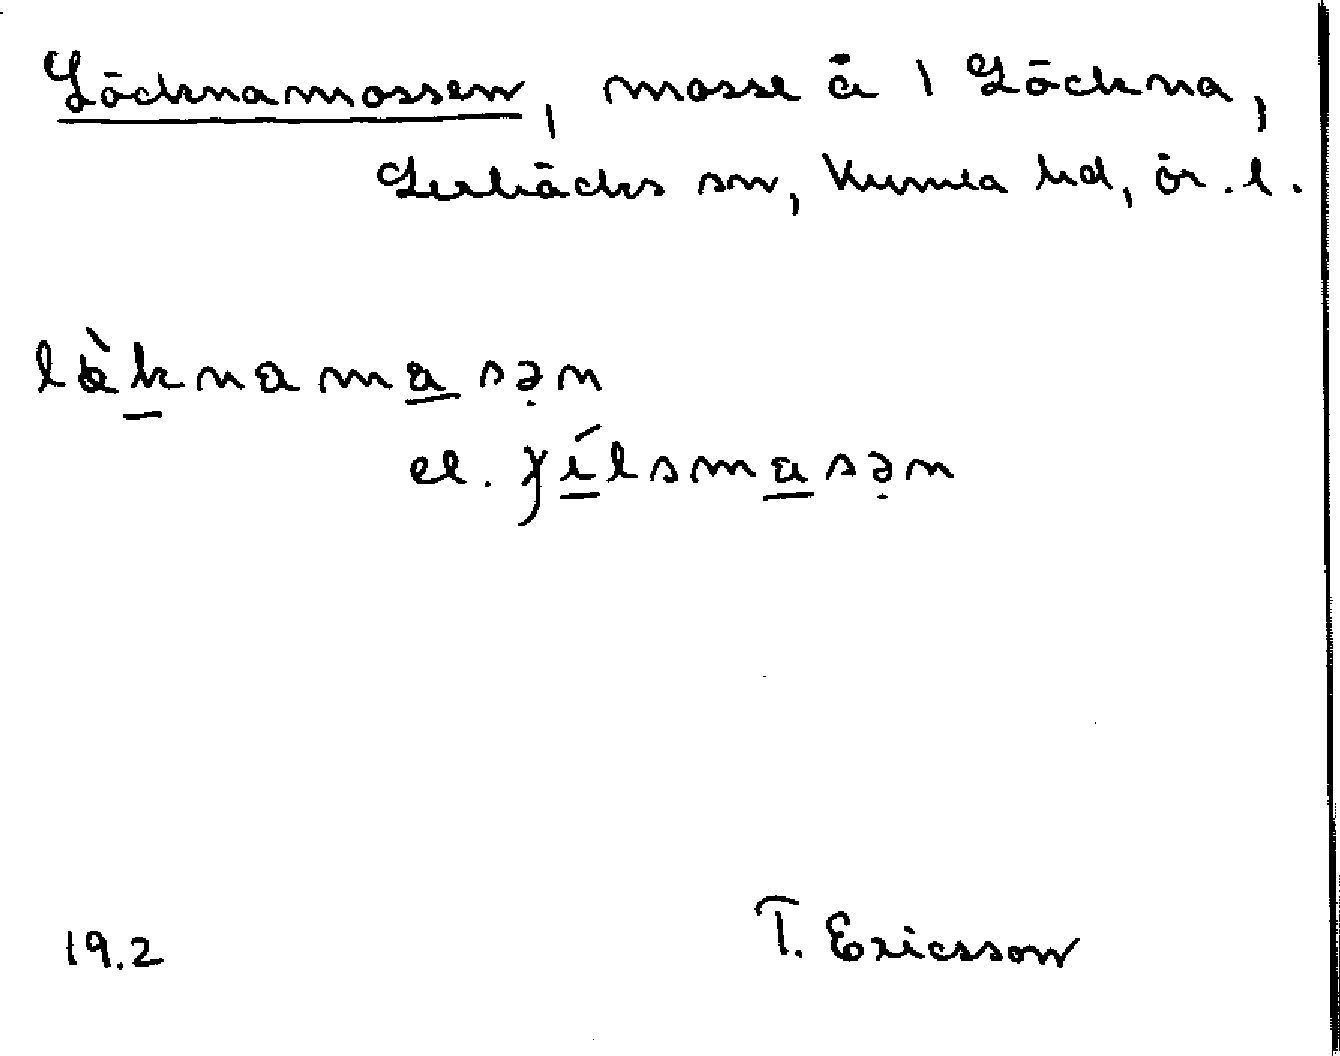 Löcknamossen, mosse å 1 Löckna,
Lerbäcks sn, Kumla hd, ör. l.
lòknamasən
el. jílsmasən
19.2
T. Ericsson